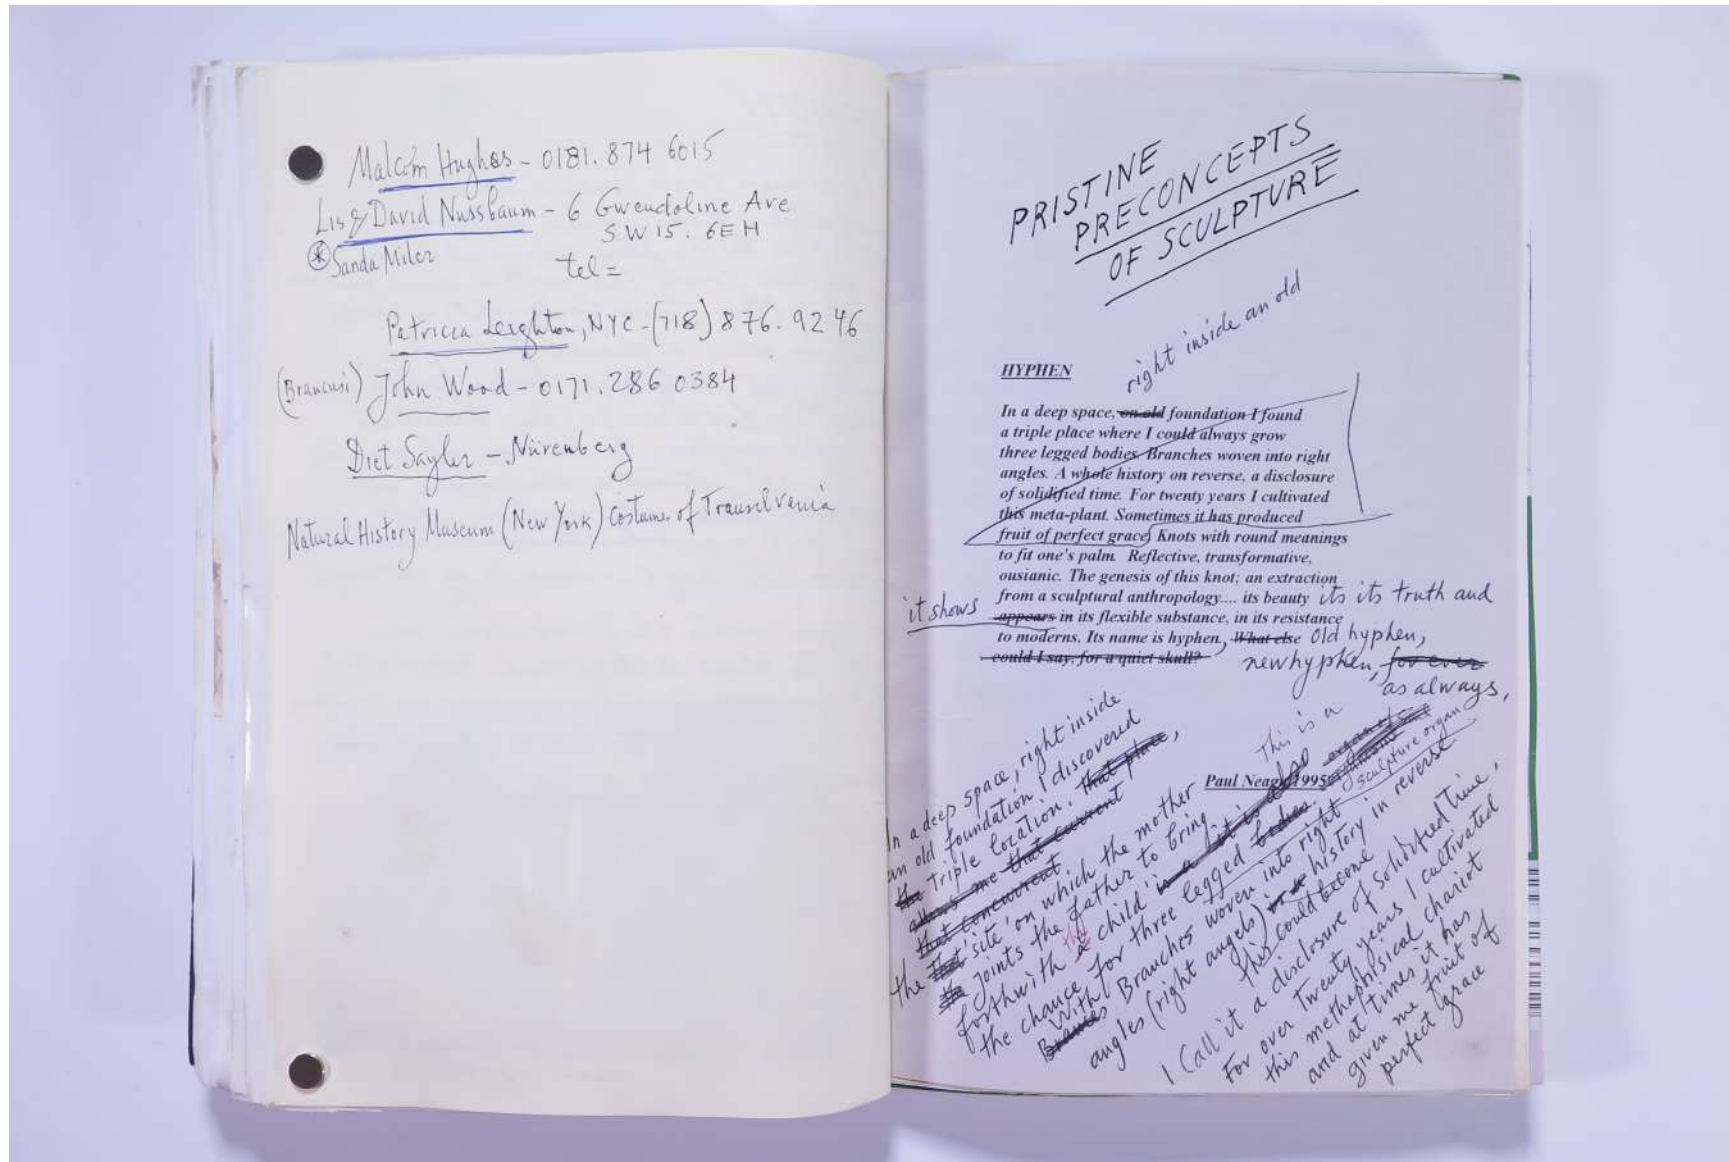 Malcom Hughes - 0181. 874 6015
Lis & David Nussbaum - 6 Gwendoline Ave
SW15. 6EH
Sanda Miler
tel =
Patricia Leighton, NYC - (718) 876. 9246
(Brancusi) John Wood - 0171. 286 0384
Diet Sayler - Nürenberg
Natural History Museum (New York) Costumes of Transilvania
PRISTINE
PRECONCEPTS
OF SCULPTURE
right inside an old
HYPHEN
In a deep space, on old foundation I found
a triple place where I could always grow
three legged bodies. Branches woven into right
angles. A whole history on reverse, a disclosure
of solidified time. For twenty years I cultivated
this meta-plant. Sometimes it has produced
fruit of perfect grace. Knots with round meanings
to fit one's palm. Reflective, transformative,
ousianic. The genesis of this knot; an extraction
from a sculptural anthropology.... its beauty its its truth and
it shows appears in its flexible substance, in its resistance
to moderns. Its name is hyphen, What else Old hyphen,
could I say, for a quiet skull? new hyphen, for ever
as always,
This is a
sculpture organ
Paul Neagu 1995
In a deep space, right inside
an old foundation I discovered
the Triple location, that place,
allows me that current
that concurrent
the that 'site' on which the mother
the joints the father to bring
forthwith a the child is a bit is also
the chance for three legged bodies.
Branches With Branches woven into right
angles (right angels) history in reverse
this could become
I Call it a disclosure of solidified time,
For over Twenty years I cultivated
this methaphisical chariot
and at times it has
given me fruit of
perfect grace